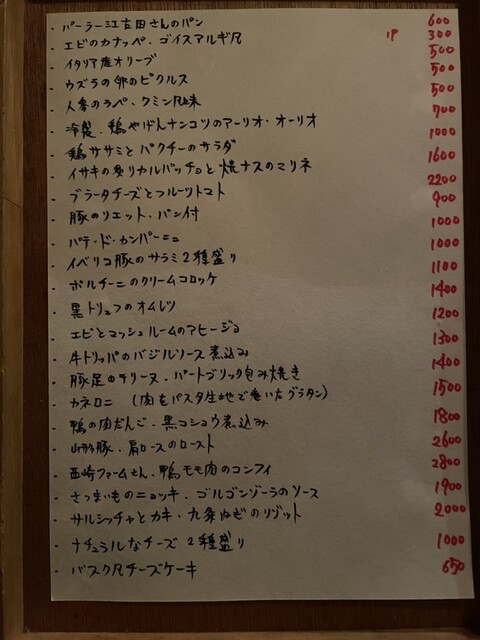 ・パーラー江古田さんのパン 600
・エビのカナッペ、ゴイスアルギ風 1P 300
・イタリア産オリーブ 500
・ウズラの卵のピクルス 500
・人参のラペ、クミン風味 500
・冷製、鶏やげんナンコツのアーリオ・オーリオ 700
・鶏ササミとパクチーのサラダ 1000
・イサキの炙りカルパッチョと焼ナスのマリネ 1600
・ブラータチーズとフルーツトマト 2200
・豚のリエット、パン付 900
・パテ・ド・カンパーニュ 1000
・イベリコ豚のサラミ2種盛り 1000
・ポルチーニのクリームコロッケ 1100
・黒トリュフのオムレツ 1400
・エビとマッシュルームのアヒージョ 1200
・牛トリッパのバジルソース煮込み 1300
・豚足のテリーヌ、パートブリック包み焼き 1400
・カネロニ (肉をパスタ生地で巻いたグラタン) 1500
・鴨の肉だんご、黒コショウ煮込み 1800
・山形豚、肩ロースのロースト 2600
・西崎ファームさん、鴨モモ肉のコンフィ 2800
・さつまいものニョッキ、ゴルゴンゾーラのソース 1900
・サルシッチャとカキ、九条ねぎのリゾット 2000
・ナチュラルなチーズ2種盛り 1000
・バスク風チーズケーキ 650